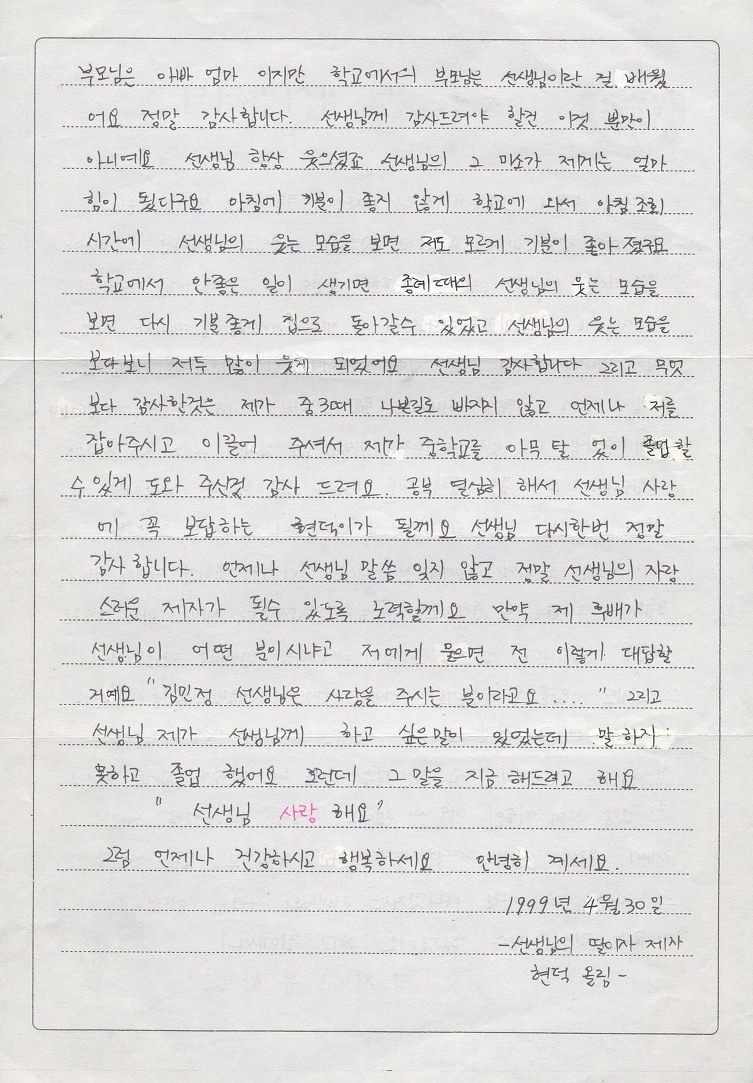 부모님은 아빠 엄마 이지만 학교에서의 부모님은 선생님이란 걸 배웠
어요 정말 감사합니다. 선생님께 감사드려야 할건 이것 뿐만이
아니예요 선생님 항상 웃으셨죠 선생님의 그 미소가 제게는 얼마
힘이 됬다구요 아침에 기분이 좋지 않게 학교에 와서 아침 조회
시간에 선생님의 웃는 모습을 보면 저도 모르게 기분이 좋아 졌구요
학교에서 안좋은 일이 생기면 종례때의 선생님의 웃는 모습을
보면 다시 기분좋게 집으로 돌아갈수 있었고 선생님의 웃는 모습을
보다보니 저두 많이 웃게 되었어요 선생님 감사합니다 그리고 무엇
보다 감사한것은 제가 중3때 나쁜길로 빠지지 않고 언제나 저를
잡아주시고 이끌어 주셔서 제가 중학교를 아무 탈 없이 졸업할
수 있게 도와 주신것 감사 드려요. 공부 열심히 해서 선생님 사랑
에 꼭 보답하는 현덕이가 될께요 선생님 다시한번 정말
감사합니다. 언제나 선생님 말씀 잊지 않고 정말 선생님의 자랑
스러운 제자가 될수 있도록 노력할께요 만약 제 후배가
선생님이 어떤 분이시냐고 저에게 물으면 전 이렇게 대답할
거예요 "김민정 선생님은 사랑을 주시는 분이라고요...." 그리고
선생님 제가 선생님께 하고 싶은말이 있었는데 말하지
못하고 졸업 했어요 그런데 그 말을 지금 해드려고 해요
"선생님 사랑 해요"
그럼 언제나 건강하시고 행복하세요 안녕히 계세요.
1999년 4월 30일
-선생님의 딸이자 제자
현덕 올림-